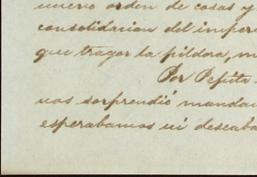 nuevo orden de cosas y
consolidacion del imperi
que tragar la píldora, m
Por Pepita
nos sorprendió mandan
esperabamos ni deseába